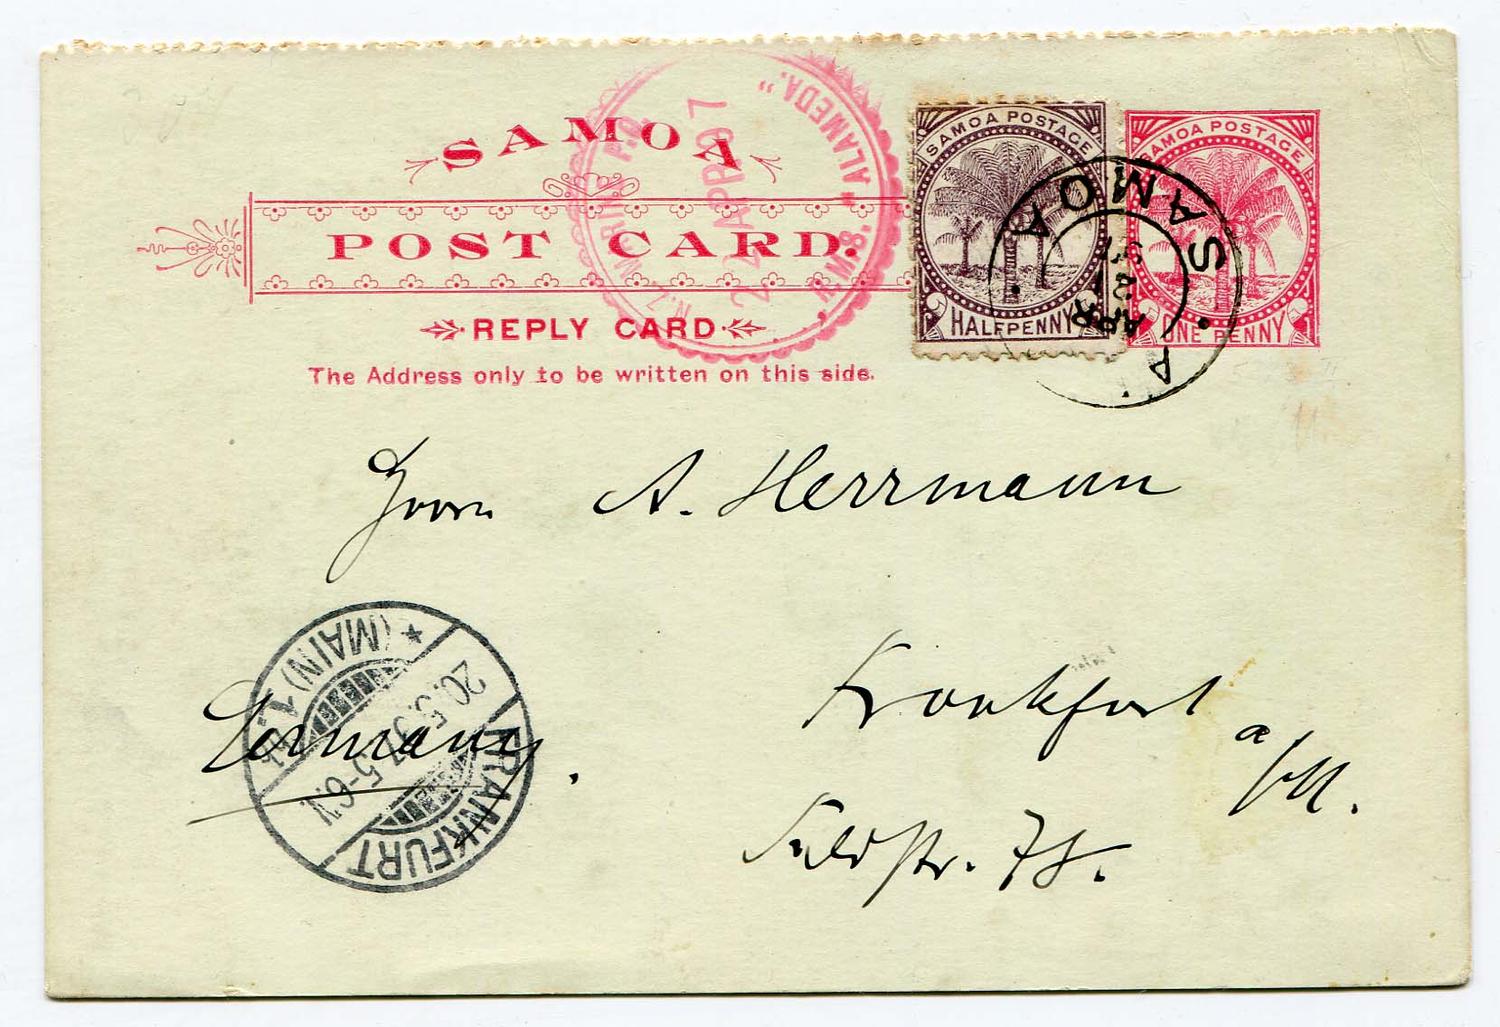 SAMOA
POST CARD.
REPLY CARD
The Address only to be written on this side.
N.Z. MARINE P.O.
R.M.S. "ALAMEDA."
22 APR 97
SAMOA POSTAGE
HALFPENNY
SAMOA POSTAGE
ONE PENNY
SAMOA
APR
Herrn A. Herrmann
Frankfurt a/M.
Germany.
FRANKFURT
* (MAIN) 1
20.5.97 5-6N.